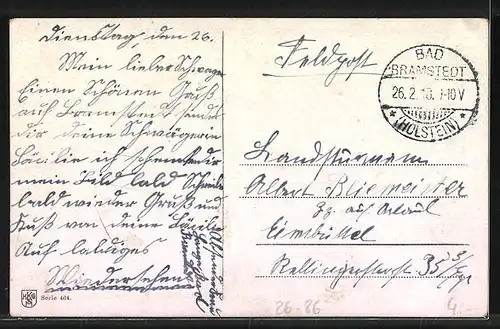 Dienstag, den 26.
Mein lieber Schwager
Einen Schönen Gruß
auf Bramstedt sendet
dir deine Schwägerin
Cäcilie ich schenke dir
mein Bild bald Schreibe
bald wieder Gruß und
Kuß von deine Cäcilie
Auf baldiges
Wiedersehen
HKCo
Serie 404.
Feldpost
BAD
BRAMSTEDT
26.2. 1-10V
(HOLSTEIN)
Landsturmmann
Albert Bliemeister
zz. auf Urlaub
Eimsbüttel
Rellingerstraße 35
26-86
4,-